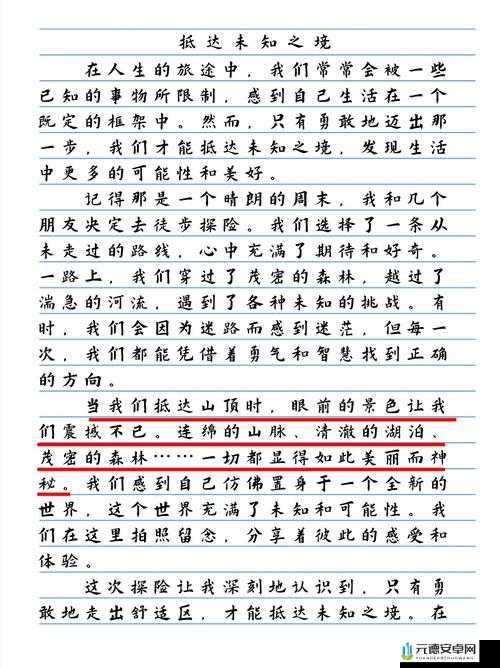 抵达未知之境
在人生的旅途中，我们常常会被一些
已知的事物所限制，感到自己生活在一个
既定的框架中。然而，只有勇敢地迈出那
一步，我们才能抵达未知之境，发现生活
中更多的可能性和美好。
记得那是一个晴朗的周末，我和几个
朋友决定去徒步探险。我们选择了一条从
未走过的路线，心中充满了期待和好奇。
一路上，我们穿过了茂密的森林，越过了
湍急的河流，遇到了各种未知的挑战。有
时，我们会因为迷路而感到迷茫，但每一
次，我们都能凭借着勇气和智慧找到正确
的方向。
当我们抵达山顶时，眼前的景色让我
们震撼不已。连绵的山脉、清澈的湖泊、
茂密的森林……一切都显得如此美丽而神
秘。我们感到自己仿佛置身于一个全新的
世界，这个世界充满了未知和可能性。我
们在这里拍照留念，分享着彼此的感受和
体验。
这次探险让我深刻地认识到，只有勇
敢地走出舒适区，才能抵达未知之境。在
元德安卓网